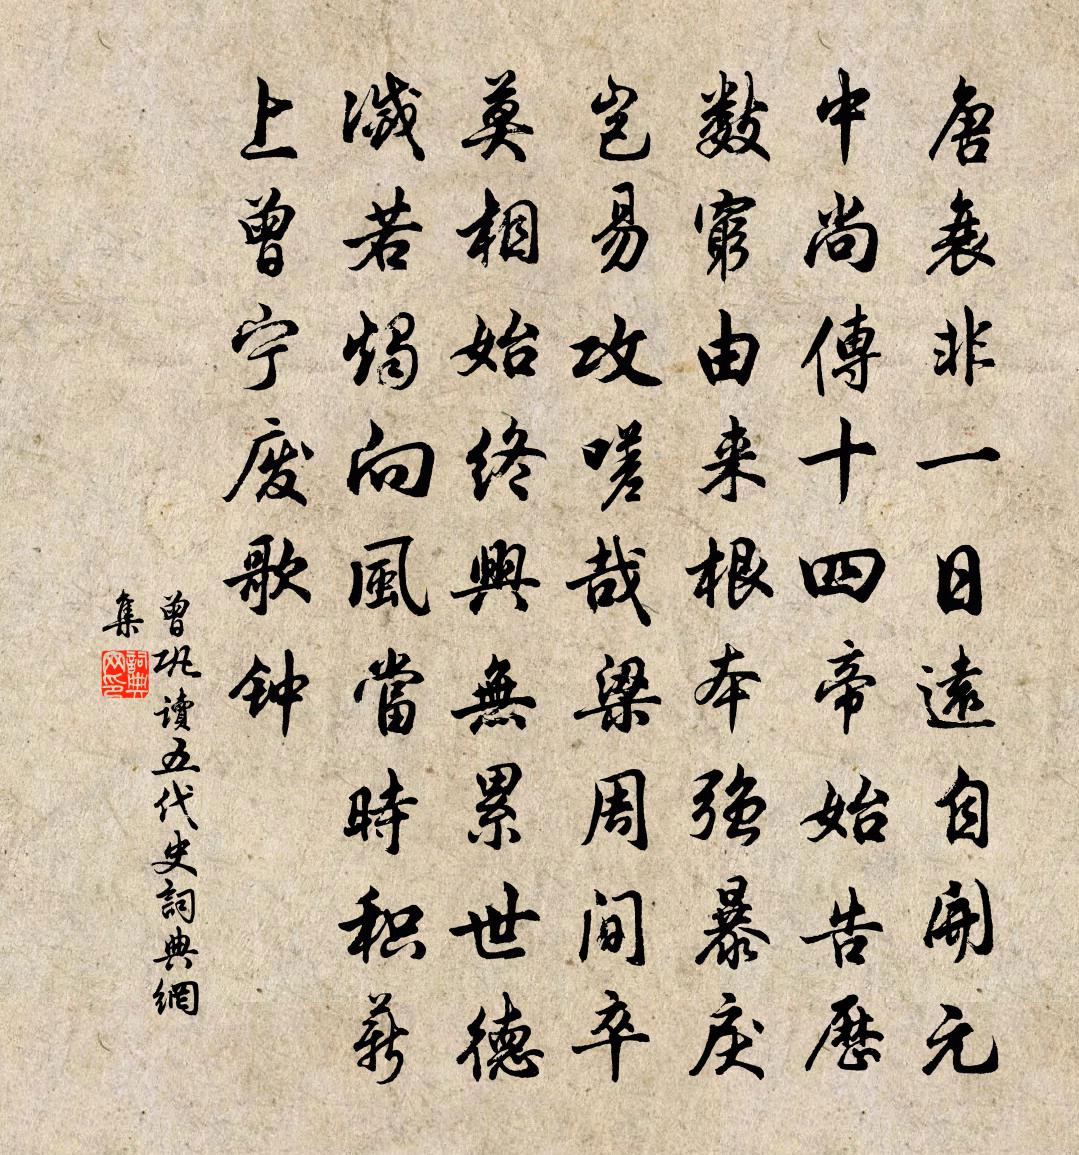 唐衰非一日遠自開元
中尚傳十四帝始告歷
數窮由来根本强暴戾
豈易攻嗟哉梁周间卒
莫相始終興無累世德
滅若燭向風當時积薪
上曾宁废歌钟
曾巩讀五代史詞典網
集
詞典
网印